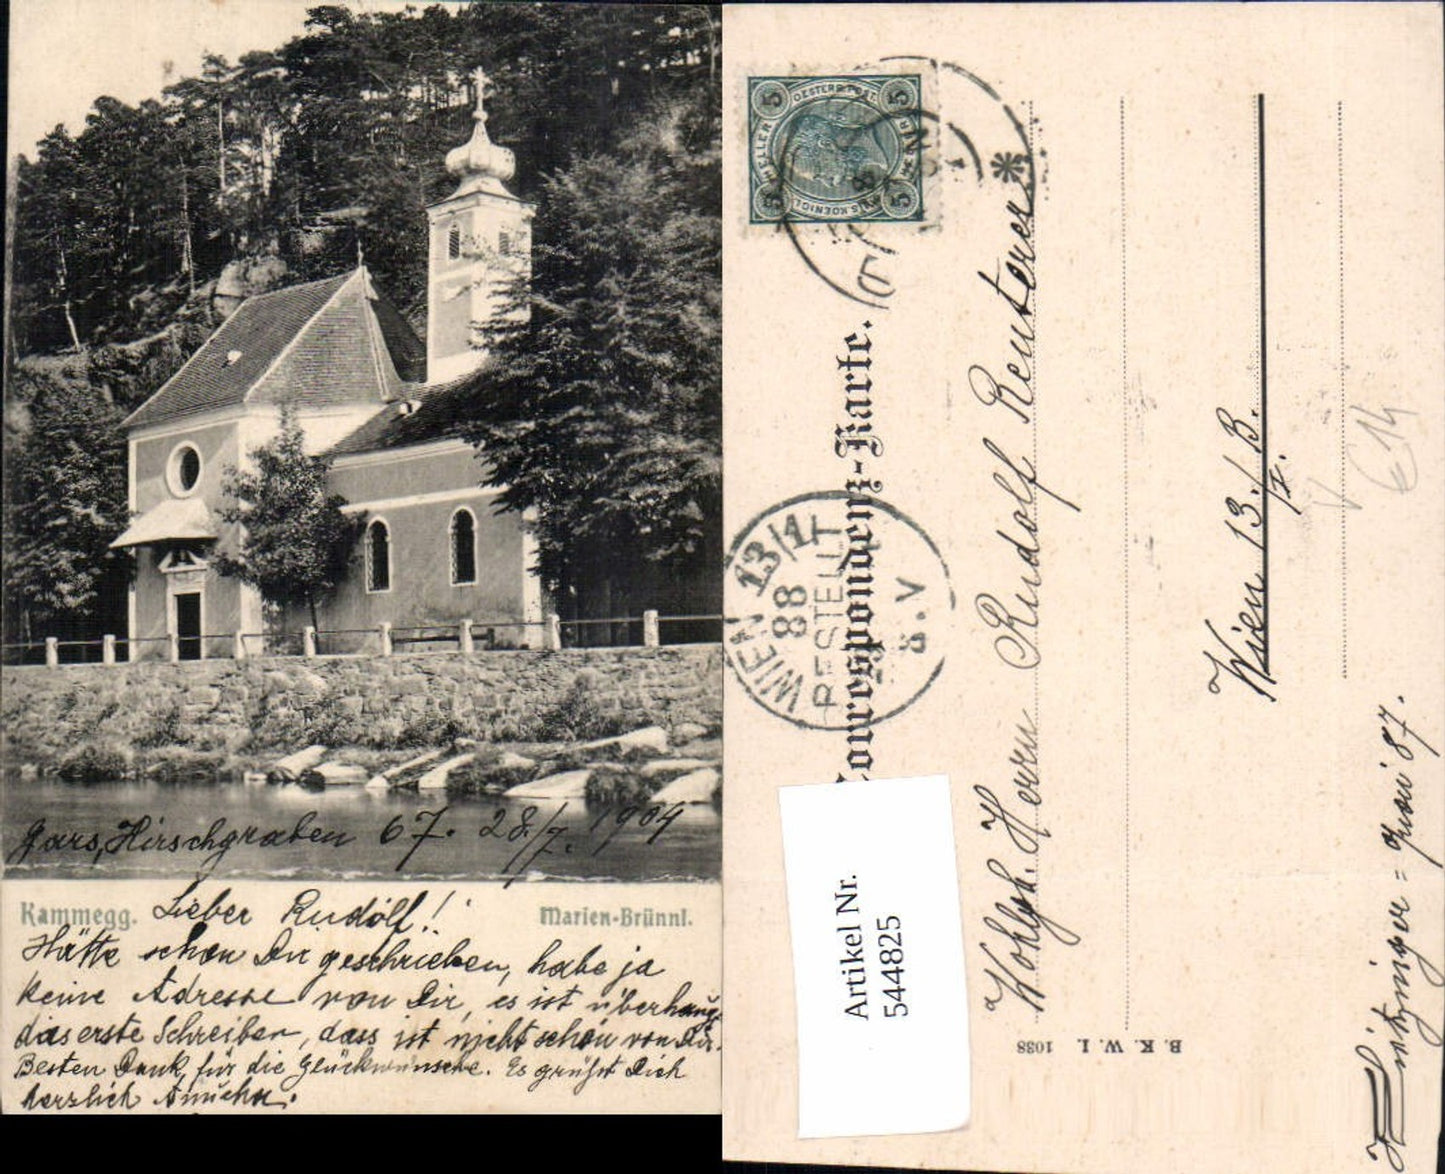 Gars, Hirschgraben 67. 28/7. 1904
Kammegg.
Marien-Brünnl.
Lieber Rudolf!
Hätte schon Dir geschrieben, habe ja
keine Adresse von Dir, es ist überhaupt
das erste Schreiben, dass ist nicht schön von Dir.
Besten Dank für die Glückwünsche. Es grüßt Dich
herzlich
5
5
5
5
HELLER
OESTERR.POST.
Correspondenz-Karte.
WIEN 13/1
88
BESTELLT
8.V
Wohlgb. Herrn Rudolf Reuterer
Wien 13./B.
€ 14
B. K. W. I. 1038
Artikel Nr.
544825